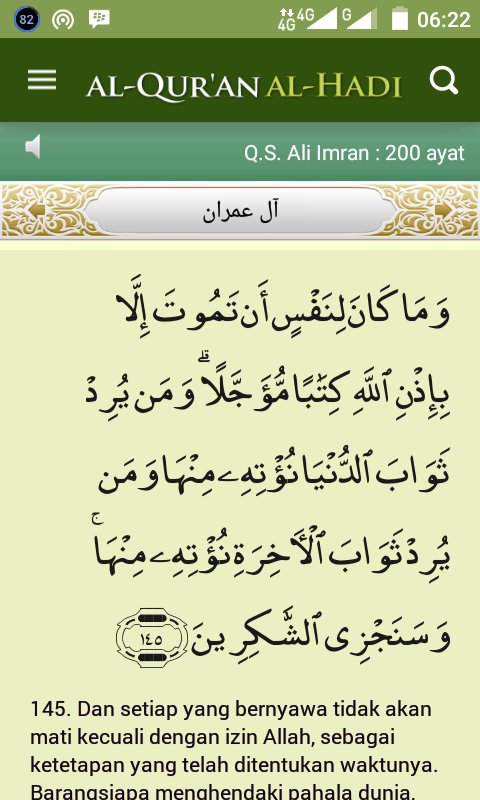 82 4G 4G G 06:22
AL-QUR'AN AL-HADI
Q.S. Ali Imran : 200 ayat
آل عمران
وَمَا كَانَ لِنَفْسٍ أَن تَمُوتَ إِلَّا
بِإِذْنِ ٱللَّهِ كِتَٰبًا مُّؤَجَّلًا ۗ وَمَن يُرِدْ
ثَوَابَ ٱلدُّنْيَا نُؤْتِهِۦ مِنْهَا وَمَن
يُرِدْ ثَوَابَ ٱلْأَخِرَةِ نُؤْتِهِۦ مِنْهَا ۚ
وَسَنَجْزِى ٱلشَّٰكِرِينَ ١٤٥
145. Dan setiap yang bernyawa tidak akan
mati kecuali dengan izin Allah, sebagai
ketetapan yang telah ditentukan waktunya.
Barangsiapa menghendaki pahala dunia,